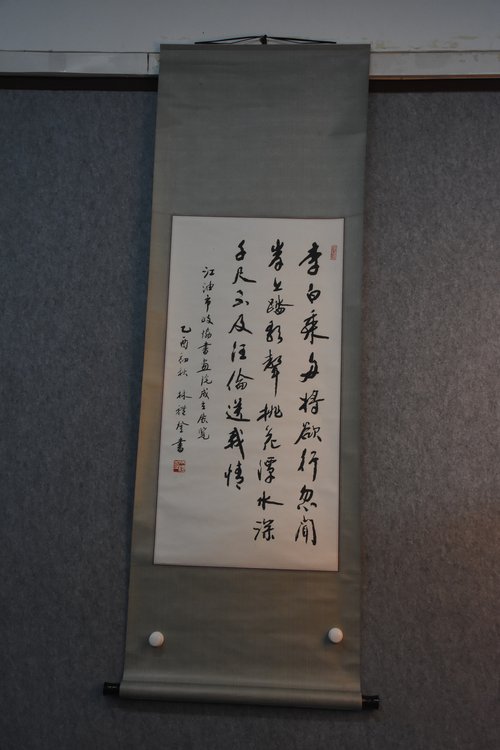 李白乘舟将欲行忽闻
岸上踏歌声桃花潭水深
千尺不及汪伦送我情
江油市政协书画院成立展览
乙酉初秋 林 书